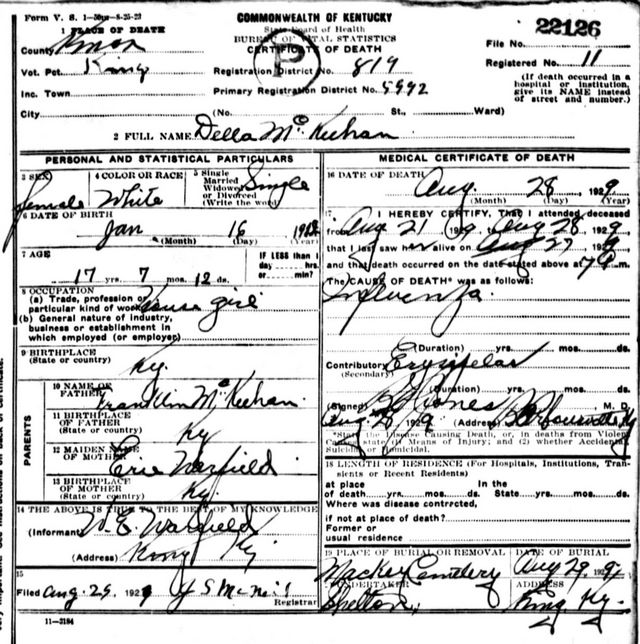 Form V. S. 1-50m-8-25-22
COMMONWEALTH OF KENTUCKY
State Board of Health
BUREAU OF VITAL STATISTICS
CERTIFICATE OF DEATH
22126
1 PLACE OF DEATH
County Knox
File No.
Vot. Pct. King
Registration District No. 819
Registered No. 11
Inc. Town
Primary Registration District No. 5992
(If death occurred in a hospital or institution, give its NAME instead of street and number.)
City
(No. St., Ward)
P
2 FULL NAME Della McKeehan
PERSONAL AND STATISTICAL PARTICULARS
3 SEX
female
4 COLOR OR RACE
White
5 Single
Married
Widowed
or Divorced
(Write the word)
Single
6 DATE OF BIRTH
Jan 16
(Month) (Day) (Year)
7 AGE
17 yrs. 7 mos. 12 ds.
IF LESS than 1
day hrs.
or min?
8 OCCUPATION
(a) Trade, profession or
particular kind of work House girl
(b) General nature of industry,
business or establishment in
which employed (or employer)
9 BIRTHPLACE
(State or country)
Ky.
PARENTS
10 NAME OF
FATHER
Franklin McKeehan
11 BIRTHPLACE
OF FATHER
(State or country)
Ky
12 MAIDEN NAME
OF MOTHER
13 BIRTHPLACE
OF MOTHER
(State or country)
Ky.
14 THE ABOVE IS TRUE TO THE BEST OF MY KNOWLEDGE
(Informant) W. E.
(Address) King Ky
15
Filed Aug. 29, 192 J S McNeil
Registrar
11-3184
MEDICAL CERTIFICATE OF DEATH
16 DATE OF DEATH
Aug. 28, 1929
(Month) (Day) (Year)
17
I HEREBY CERTIFY, That I attended deceased
from Aug 21 Aug 28 1929
that I last saw her alive on Aug 27 1929
and that death occurred on the date stated above at M.
The CAUSE OF DEATH* was as follows:
Influenza
(Duration) yrs. mos. ds.
Contributory Erysipelas
(Secondary)
(Duration) yrs. mos. ds.
(Signed) Jones M. D.
Aug 28 (Address) Barbourville Ky
*State the Disease Causing Death, or, in deaths from Violent
Causes state (1) Means of Injury; and (2) whether Accidental,
Suicidal or Homicidal.
18 LENGTH OF RESIDENCE (For Hospitals, Institutions, Transients or Recent Residents)
at place
of death yrs. mos. ds.
In the
State yrs. mos. ds.
Where was disease contrrcted,
if not at place of death?
Former or
usual residence
19 PLACE OF BURIAL OR REMOVAL
Mackey Cemetery
DATE OF BURIAL
Aug 29, 1929
UNDERTAKER
Shelton
ADDRESS
King Ky.